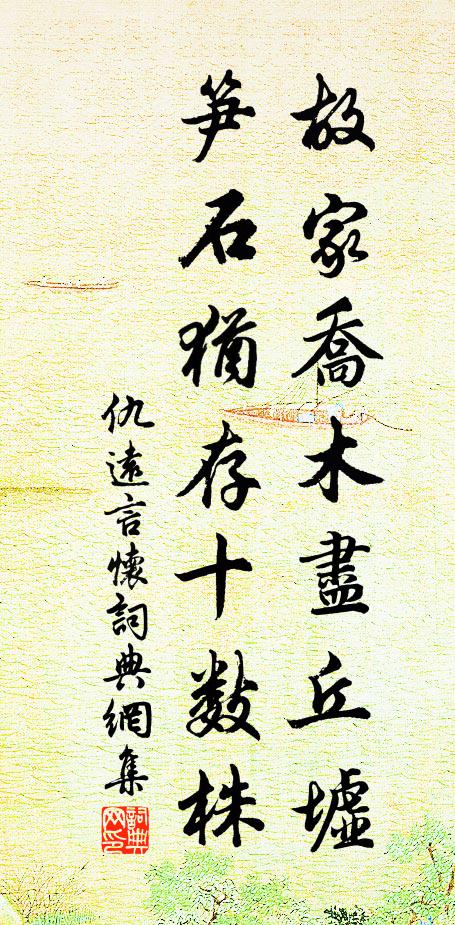 故家喬木盡丘墟
笋石猶存十數株
仇遠言懷詞典網集
詞典網印